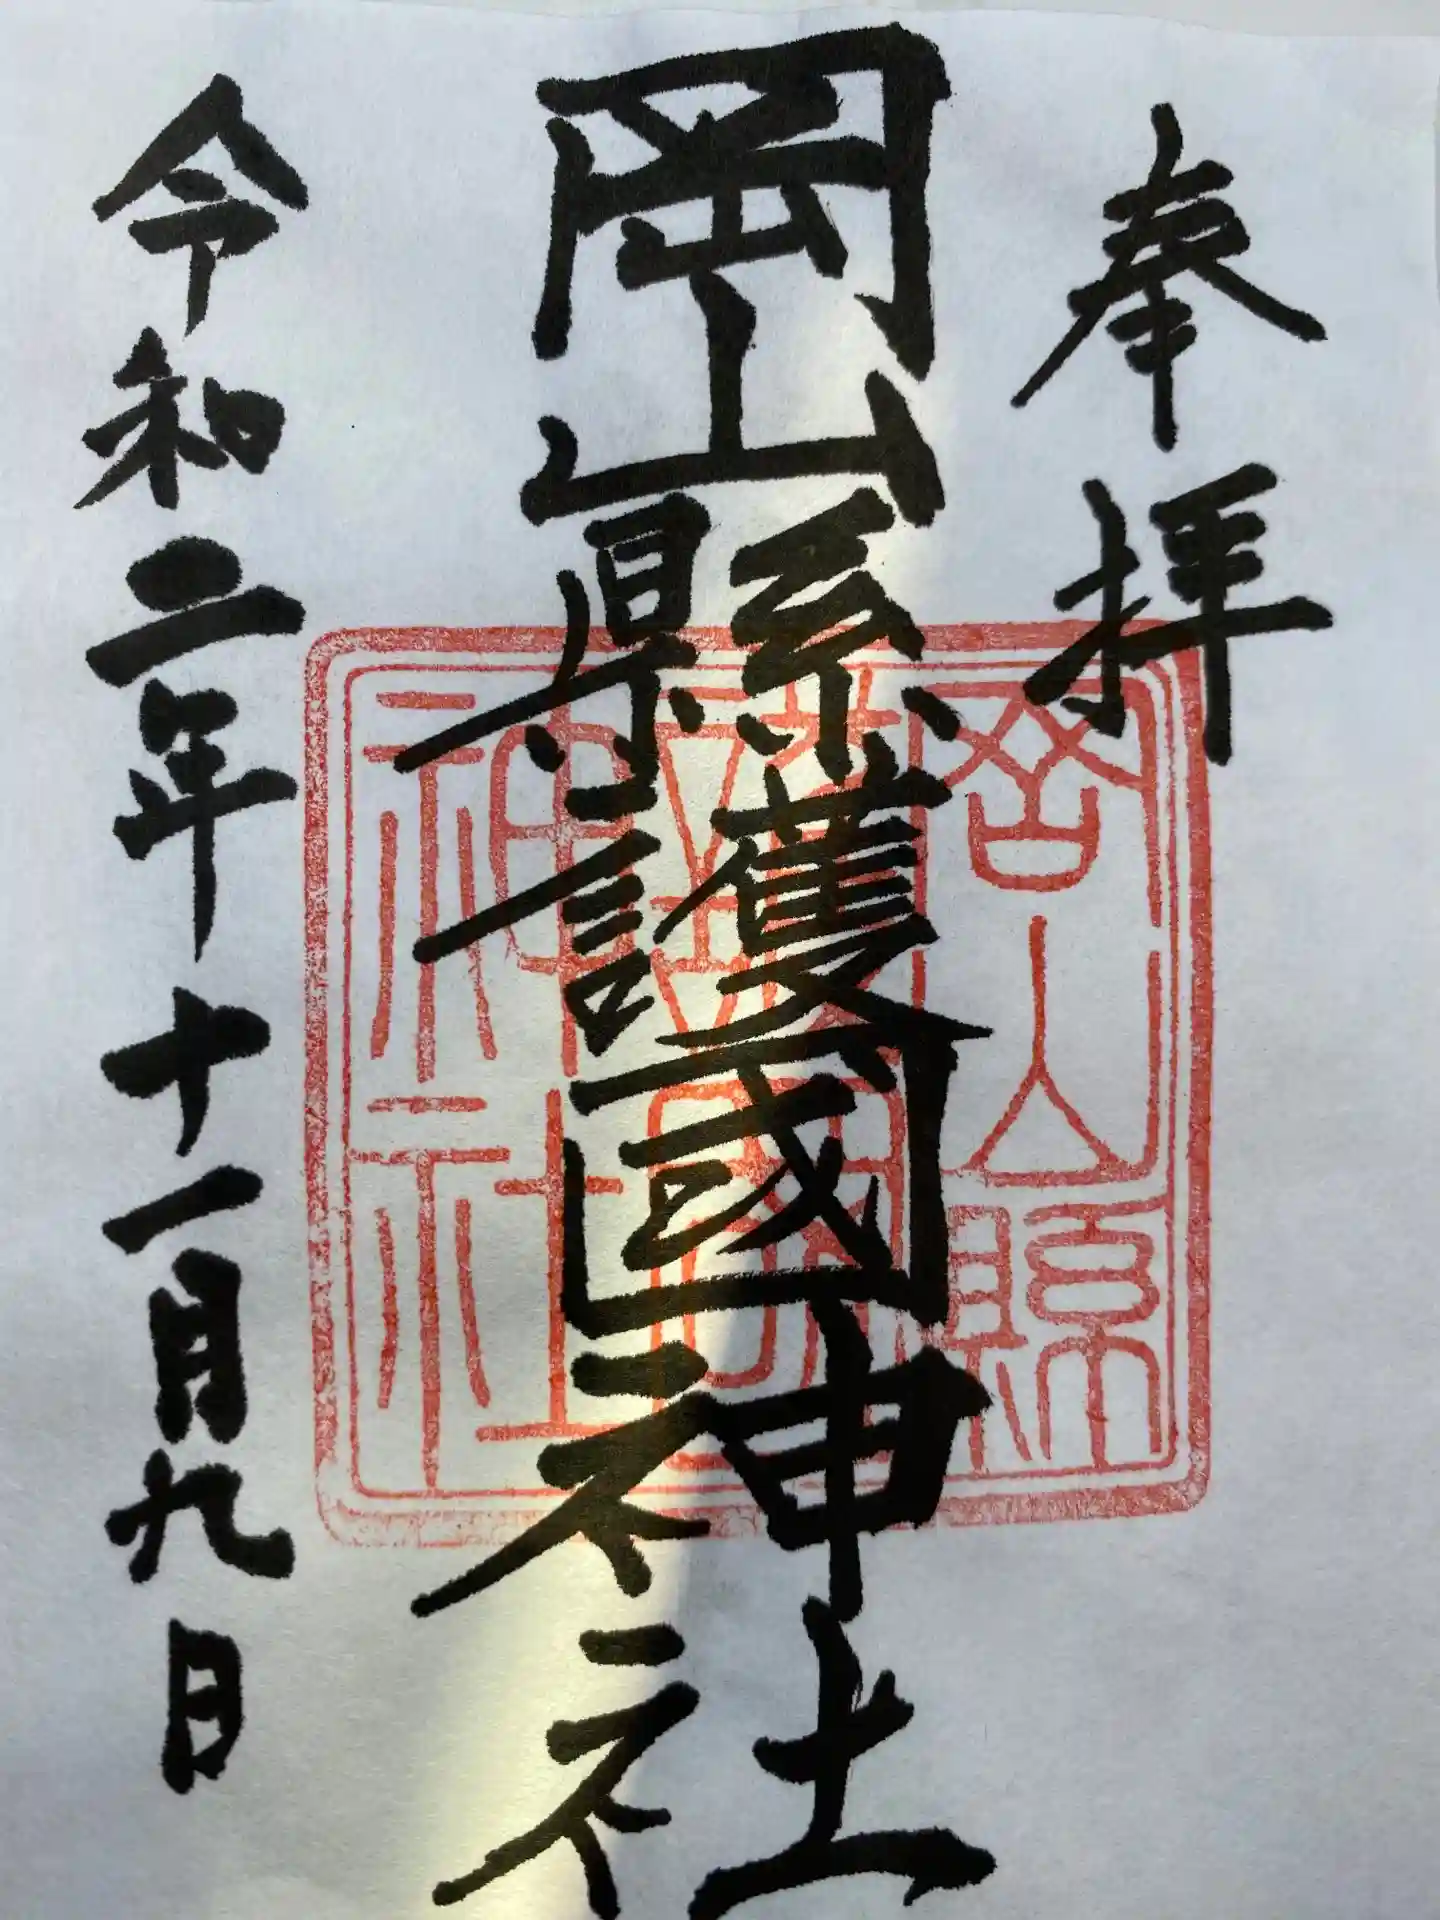 奉拝
岡山縣護國神社
岡山縣護國神社
令和二年十一月九日